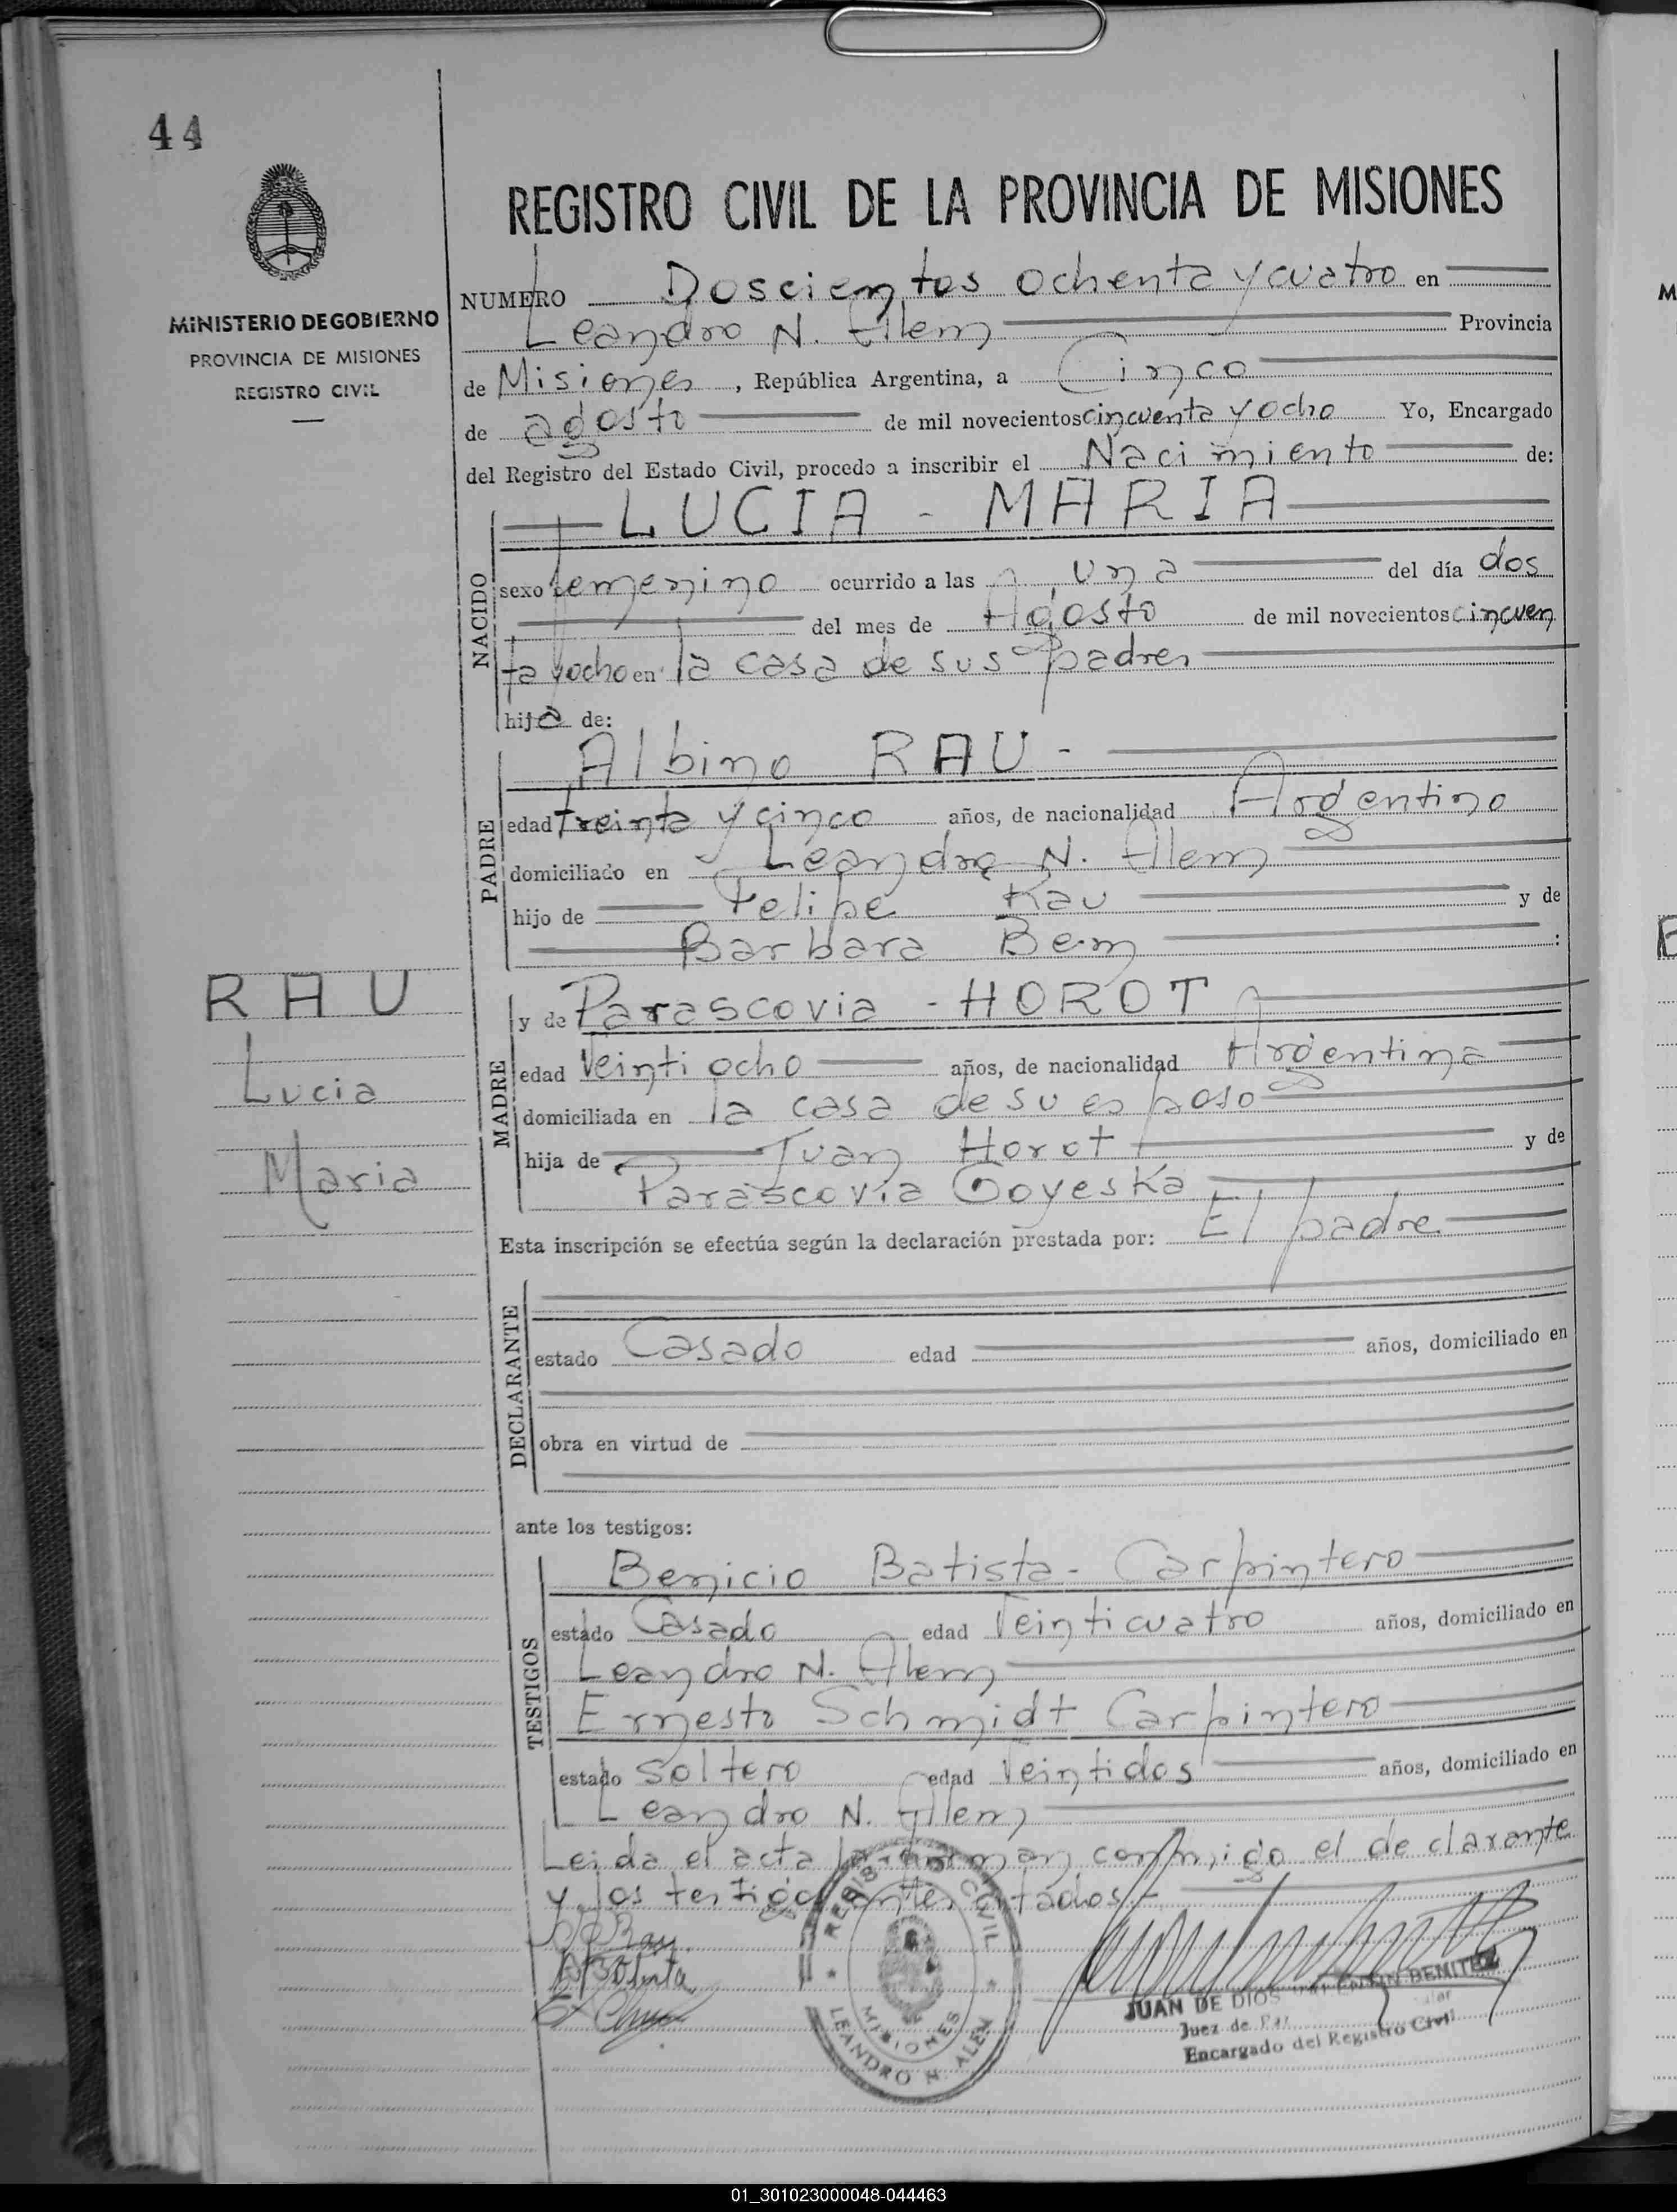 44
MINISTERIO DE GOBIERNO
PROVINCIA DE MISIONES
REGISTRO CIVIL
REGISTRO CIVIL DE LA PROVINCIA DE MISIONES
NUMERO Doscientos ochenta y cuatro en
Leandro N. Alem Provincia
de Misiones, República Argentina, a Cinco
de agosto de mil novecientos cincuenta y ocho Yo, Encargado
del Registro del Estado Civil, procedo a inscribir el Nacimiento de:
NACIDO
LUCIA - MARIA
sexo femenino ocurrido a las una del día dos
del mes de Agosto de mil novecientos cincuen
ta y ocho en la casa de sus padres
hija de:
PADRE
Albino RAU -
edad treinta y cinco años, de nacionalidad Argentino
domiciliado en Leandro N. Alem
hijo de Felipe Rau y de
Barbara Bem :
RAU
Lucia
Maria
MADRE
y de Parascovia - HOROT
edad Veintiocho años, de nacionalidad Argentina
domiciliada en la casa de su esposo
hija de Juan Horot y de
Parascovia Goyeska
Esta inscripción se efectúa según la declaración prestada por: El padre
DECLARANTE
estado Casado edad años, domiciliado en
obra en virtud de
ante los testigos:
TESTIGOS
Benicio Batista - Carpintero
estado Casado edad Veinticuatro años, domiciliado en
Leandro N. Alem
Ernesto Schmidt Carpintero
estado soltero edad Veintidos años, domiciliado en
Leandro N. Alem
Leida el acta la firman conmigo el declarante
y los testigos antes citados -
REGISTRO CIVIL
MISIONES
LEANDRO N. ALEM
JUAN DE DIOS BENITEZ
Juez de Paz
Encargado del Registro Civil
01_301023000048-044463